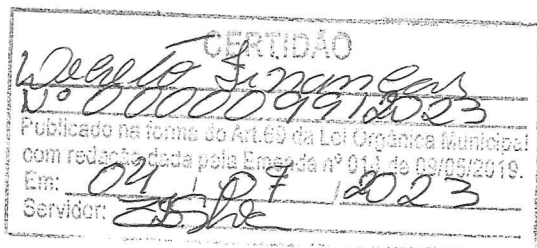 CERTIDÃO
Decreto Financeiro
Nº 00000991/2023
Publicado na forma do Art.69 da Lei Orgânica Municipal
com redação dada pela Emenda nº 014 de 09/09/2019.
Em: 04 / 07 / 2023
Servidor: